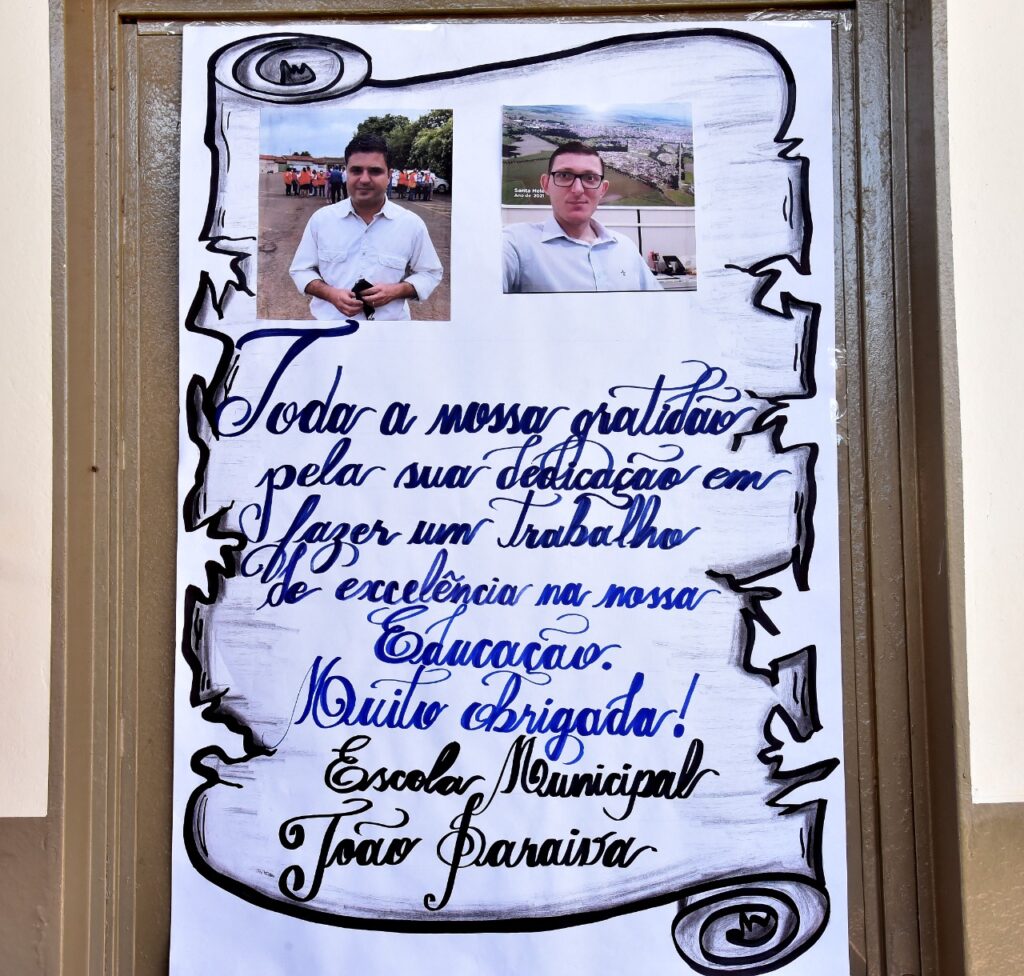 Santa Hele
Ano de 2021
Toda a nossa gratidão
pela sua dedicação em
fazer um trabalho
de excelência na nossa
Educação.
Muito obrigada!
Escola Municipal
João Paraiva